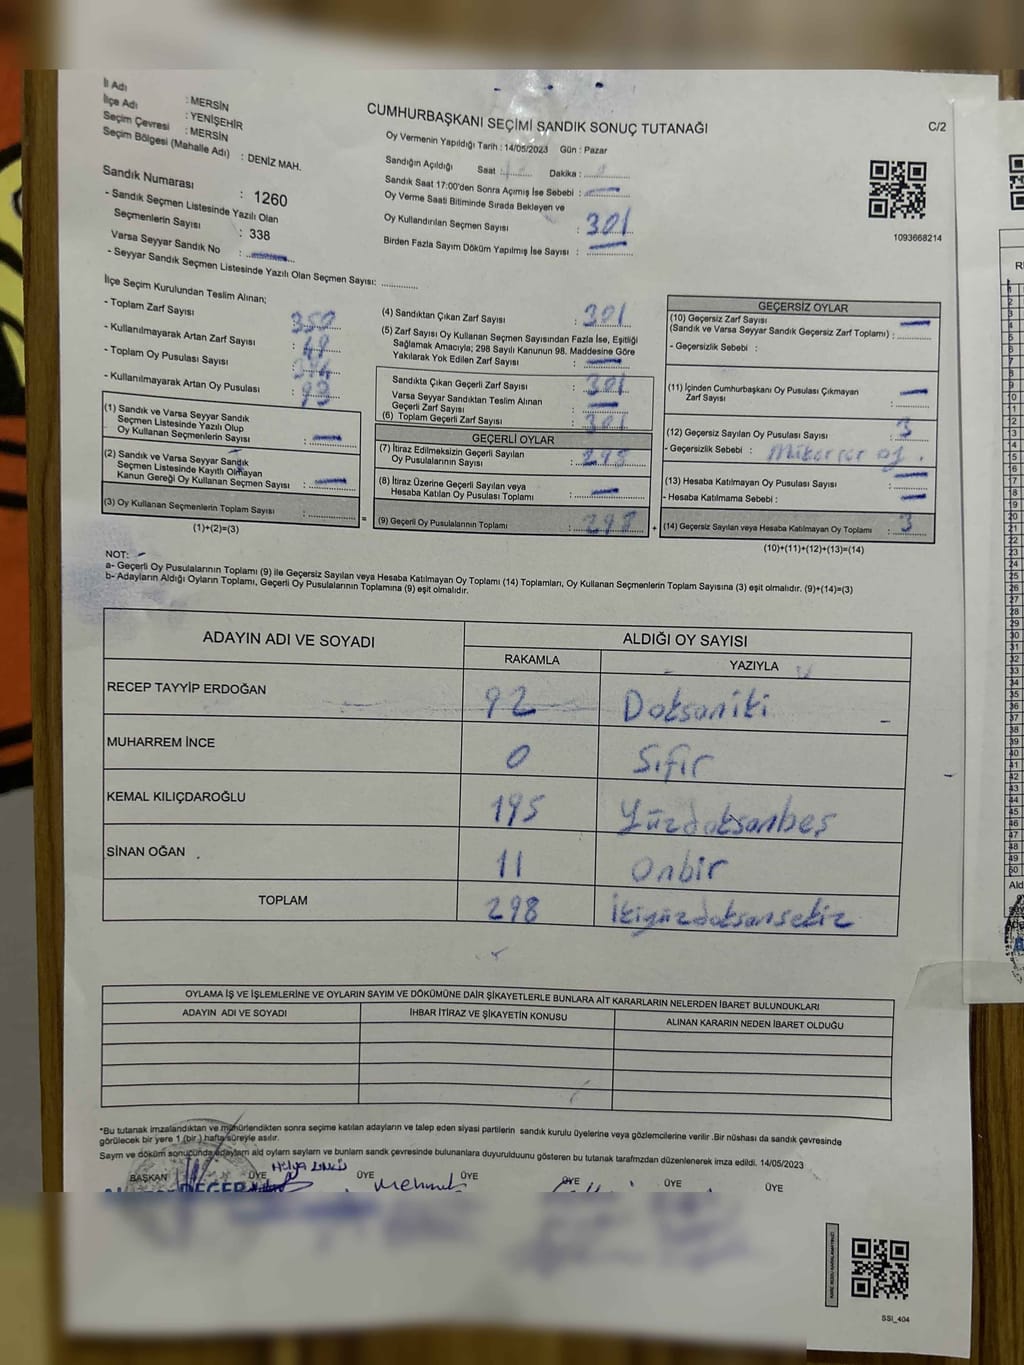 İl Adı : MERSİN
İlçe Adı : YENİŞEHİR
Seçim Çevresi : MERSİN
Seçim Bölgesi (Mahalle Adı) : DENİZ MAH.
CUMHURBAŞKANI SEÇİMİ SANDIK SONUÇ TUTANAĞI
C/2
Oy Vermenin Yapıldığı Tarih : 14/05/2023 Gün : Pazar
Sandığın Açıldığı Saat : Dakika :
Sandık Saat 17:00'den Sonra Açımış İse Sebebi :
Oy Verme Saati Bitiminde Sırada Bekleyen ve
Oy Kullandırılan Seçmen Sayısı : 301
Birden Fazla Sayım Döküm Yapılmış İse Sayısı :
1093668214
Sandık Numarası : 1260
- Sandık Seçmen Listesinde Yazılı Olan
Seçmenlerin Sayısı : 338
Varsa Seyyar Sandık No :
- Seyyar Sandık Seçmen Listesinde Yazılı Olan Seçmen Sayısı:
İlçe Seçim Kurulundan Teslim Alınan;
- Toplam Zarf Sayısı : 350
- Kullanılmayarak Artan Zarf Sayısı : 49
- Toplam Oy Pusulası Sayısı :
- Kullanılmayarak Artan Oy Pusulası : 93
(1) Sandık ve Varsa Seyyar Sandık
Seçmen Listesinde Yazılı Olup
Oy Kullanan Seçmenlerin Sayısı :
(2) Sandık ve Varsa Seyyar Sandık
Seçmen Listesinde Kayıtlı Olmayan
Kanun Gereği Oy Kullanan Seçmen Sayısı :
(3) Oy Kullanan Seçmenlerin Toplam Sayısı :
(1)+(2)=(3)
(4) Sandıktan Çıkan Zarf Sayısı : 301
(5) Zarf Sayısı Oy Kullanan Seçmen Sayısından Fazla İse, Eşitliği
Sağlamak Amacıyla; 298 Sayılı Kanunun 98. Maddesine Göre
Yakılarak Yok Edilen Zarf Sayısı :
Sandıkta Çıkan Geçerli Zarf Sayısı : 301
Varsa Seyyar Sandıktan Teslim Alınan
Geçerli Zarf Sayısı :
(6) Toplam Geçerli Zarf Sayısı : 301
GEÇERLİ OYLAR
(7) İtiraz Edilmeksizin Geçerli Sayılan
Oy Pusulalarının Sayısı : 298
(8) İtiraz Üzerine Geçerli Sayılan veya
Hesaba Katılan Oy Pusulası Toplamı :
(9) Geçerli Oy Pusulalarının Toplamı : 298
GEÇERSİZ OYLAR
(10) Geçersiz Zarf Sayısı
(Sandık ve Varsa Seyyar Sandık Geçersiz Zarf Toplamı) :
- Geçersizlik Sebebi :
(11) İçinden Cumhurbaşkanı Oy Pusulası Çıkmayan
Zarf Sayısı :
(12) Geçersiz Sayılan Oy Pusulası Sayısı : 3
- Geçersizlik Sebebi : Mükerrer oy.
(13) Hesaba Katılmayan Oy Pusulası Sayısı :
- Hesaba Katılmama Sebebi :
(14) Geçersiz Sayılan veya Hesaba Katılmayan Oy Toplamı : 3
(10)+(11)+(12)+(13)=(14)
NOT:
a- Geçerli Oy Pusulalarının Toplamı (9) ile Geçersiz Sayılan veya Hesaba Katılmayan Oy Toplamı (14) Toplamları, Oy Kullanan Seçmenlerin Toplam Sayısına (3) eşit olmalıdır. (9)+(14)=(3)
b- Adayların Aldığı Oyların Toplamı, Geçerli Oy Pusulalarının Toplamına (9) eşit olmalıdır.
ADAYIN ADI VE SOYADI ALDIĞI OY SAYISI
RAKAMLA YAZIYLA
RECEP TAYYİP ERDOĞAN 92 Doksaniki
MUHARREM İNCE 0 Sıfır
KEMAL KILIÇDAROĞLU 195 Yüzdoksanbeş
SİNAN OĞAN 11 Onbir
TOPLAM 298 İkiyüzdoksansekiz
OYLAMA İŞ VE İŞLEMLERİNE VE OYLARIN SAYIM VE DÖKÜMÜNE DAİR ŞİKAYETLERLE BUNLARA AİT KARARLARIN NELERDEN İBARET BULUNDUKLARI
ADAYIN ADI VE SOYADI İHBAR İTİRAZ VE ŞİKAYETİN KONUSU ALINAN KARARIN NEDEN İBARET OLDUĞU
*Bu tutanak imzalandıktan ve mühürlendikten sonra seçime katılan adayların ve talep eden siyasi partilerin sandık kurulu üyelerine veya gözlemcilerine verilir .Bir nüshası da sandık çevresinde
görülecek bir yere 1 (bir) hafta süreyle asılır.
Sayım ve döküm sonucunda adayların aldı oyların sayıların ve bunların sandık çevresinde bulunanlara duyurulduunu gösteren bu tutanak tarafmzdan düzenlenerek imza edildi. 14/05/2023
BAŞKAN ÜYE ÜYE ÜYE ÜYE ÜYE
Mehmet
SSI_404